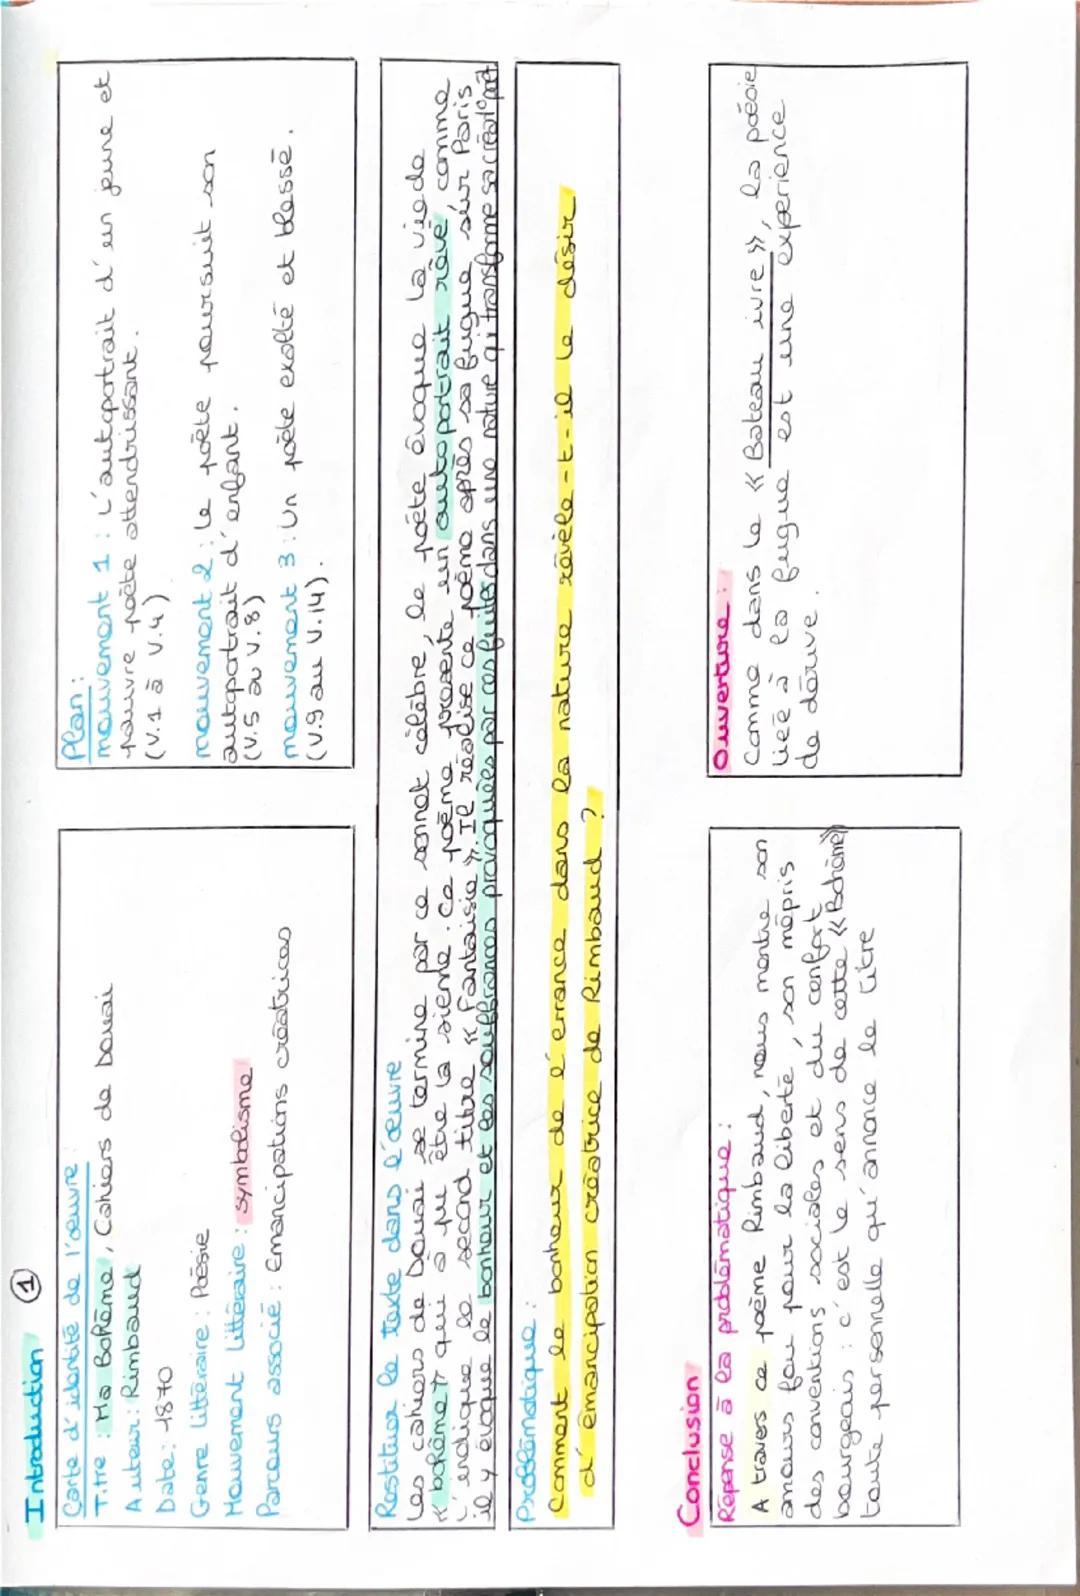 Introduction ①
Carte d'identité de l'œuvre :
Titre : Ma Bohême, Cahiers de Douai
Auteur : Rimbaud
Date : 1870
Genre littéraire : Poésie
Mouvement littéraire : symbolisme
Parcours associé : Emancipations créatrices
Plan :
mouvement 1 : L'autoportrait d'un jeune et
pauvre poète attendrissant.
(V.1 à V.4)
mouvement 2 : le poète poursuit son
autoportrait d'enfant.
(V.5 au V.8)
mouvement 3 : Un poète exalté et blessé.
(V.9 au V.14).
Restituer le texte dans l'œuvre
Les cahiers de Douai se termine par ce sonnet célèbre, le poète évoque la vie de
« bohême » qui a pu être la sienne. Ce poème présente un autoportrait rêvé, comme
l'indique le second titre « Fantaisie ». Il réalise ce poème après sa fugue sur Paris
il y évoque le bonheur et les souffrances provoquées par ces fuites dans une nature qui transforme sa créat° poét
Problématique :
Comment le bonheur de l'errance dans la nature révèle-t-il le désir
d'émancipation créatrice de Rimbaud ?
Conclusion
Réponse à la problématique :
A traves ce poème Rimbaud, nous montre son
amours fou pour la liberté, son mépris
des conventions sociales et du confort
bourgeais : c'est le sens de cette « Bohême »
toute personnelle qu'annonce le titre
Ouverture :
Comme dans le « Bateau ivre », la poésie
liée à la fugue est une expérience
de dérive.